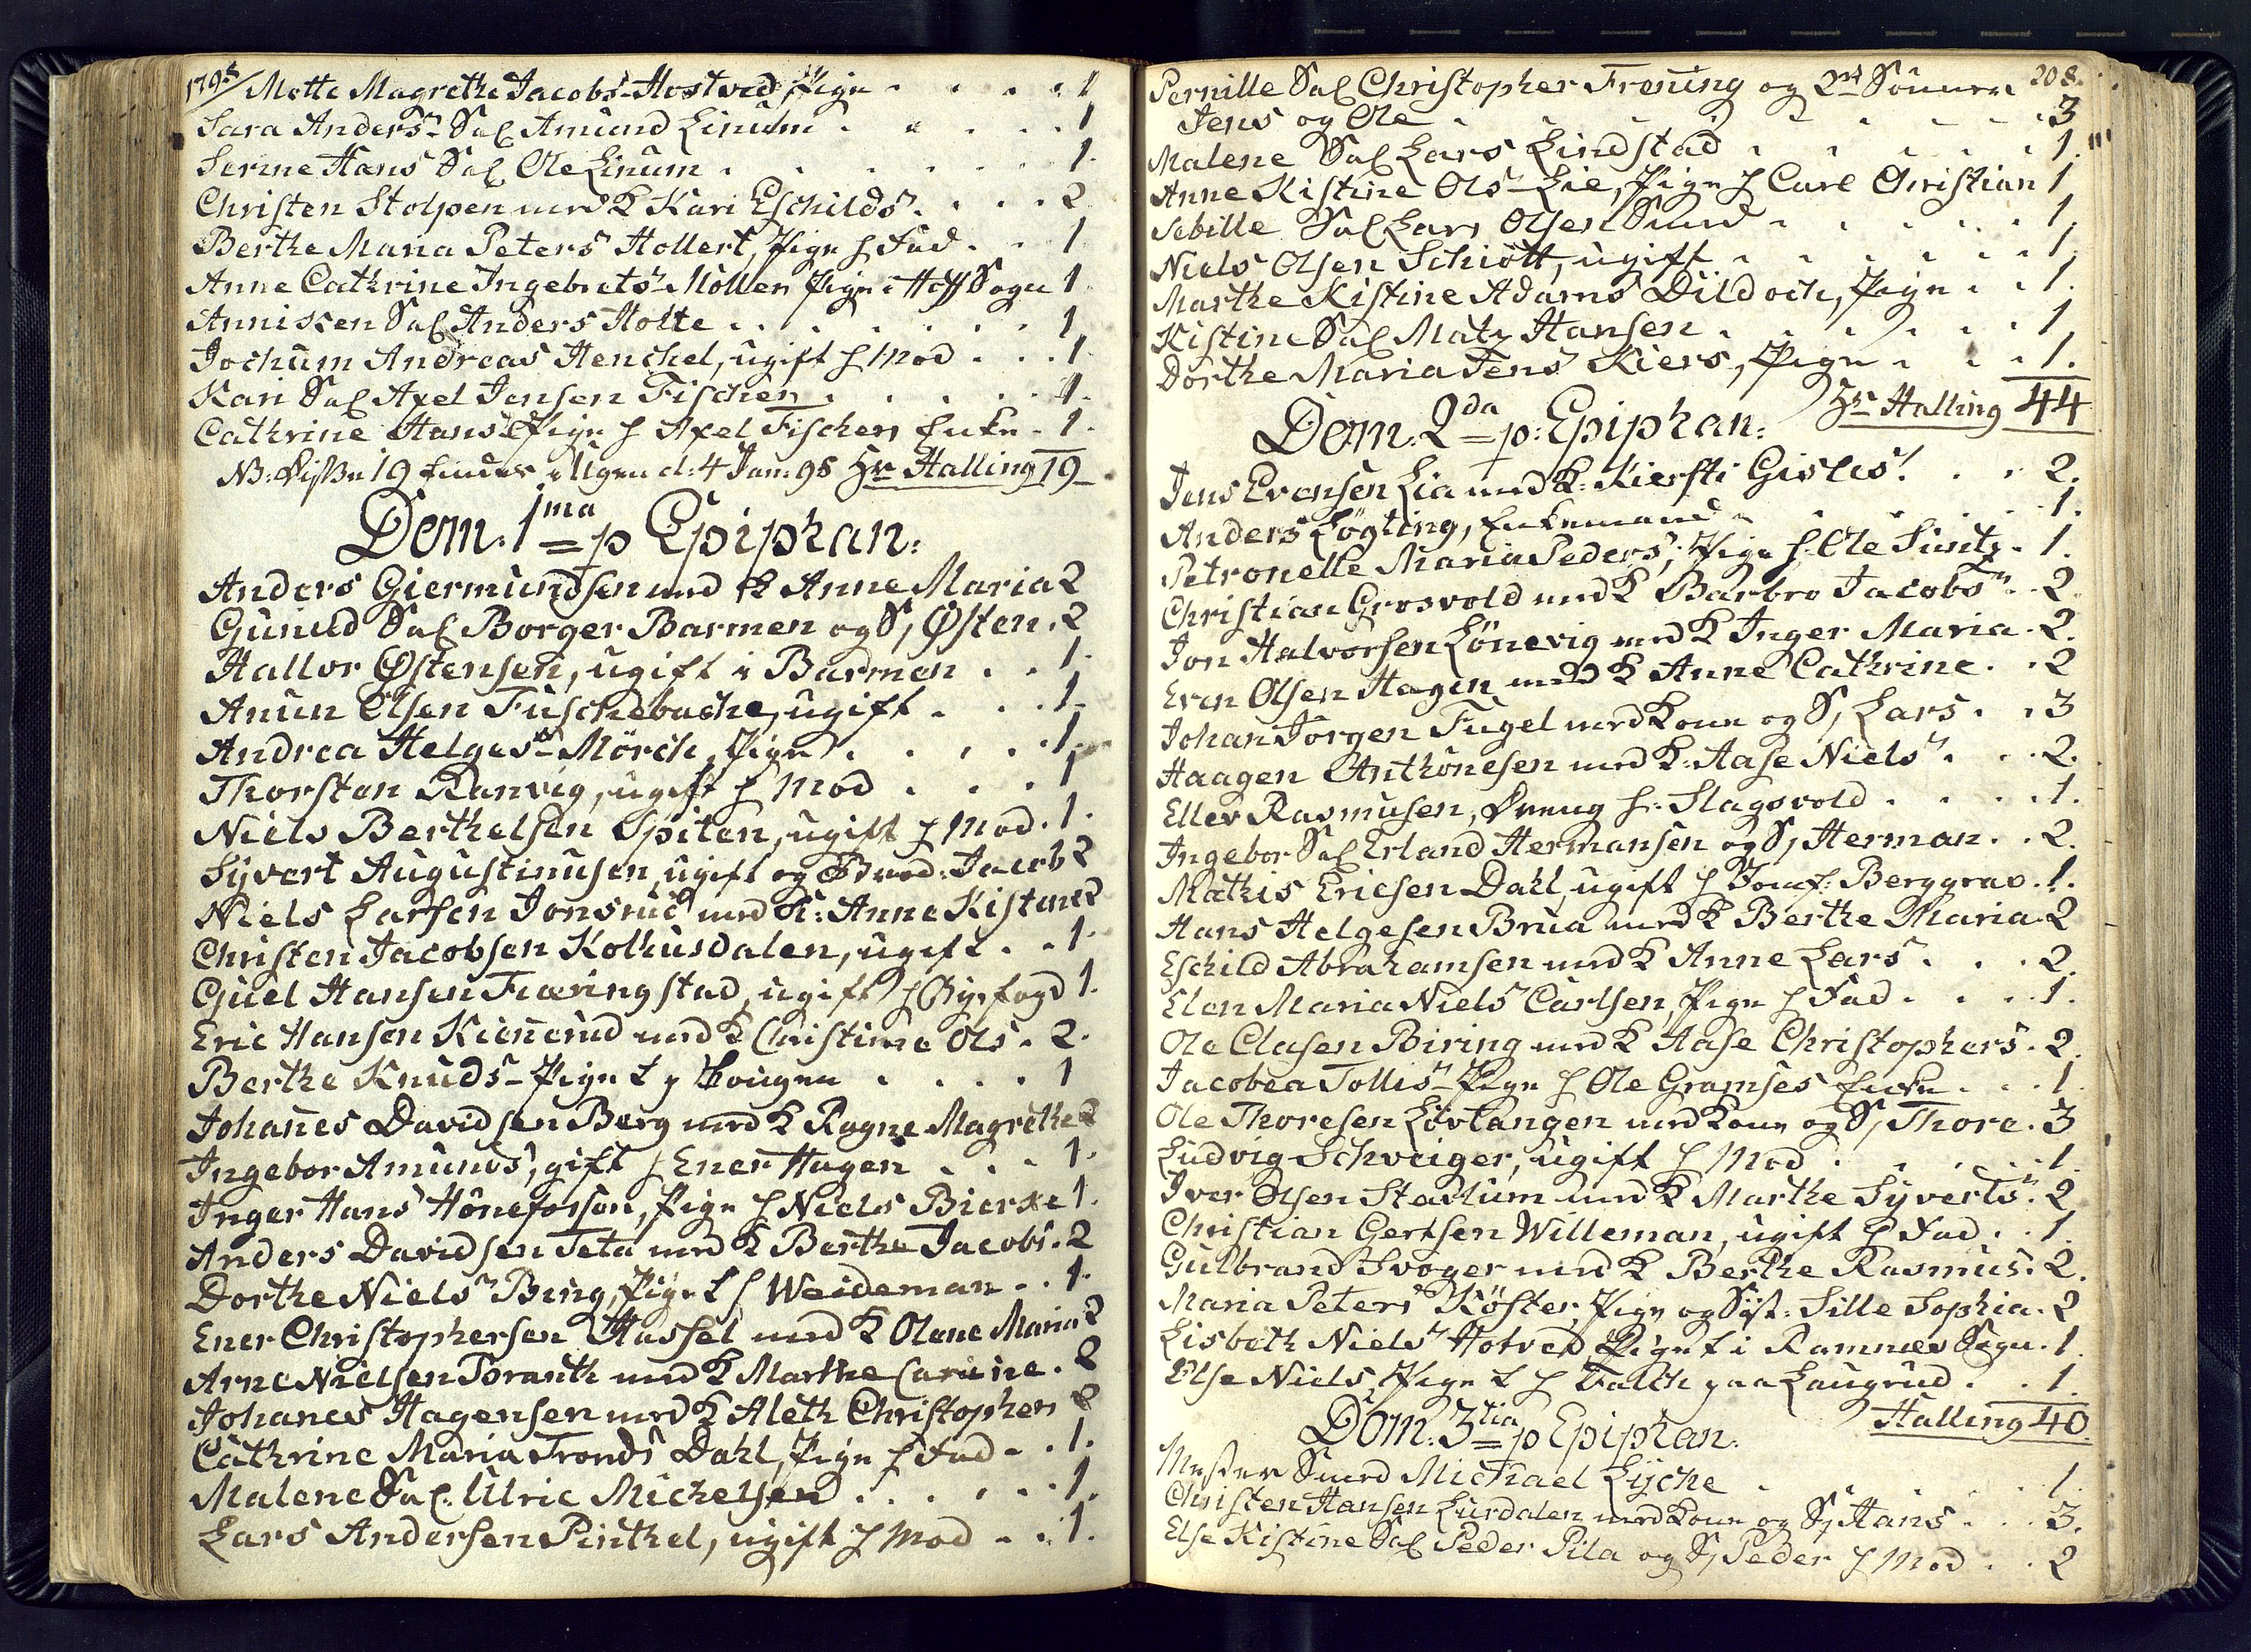 1795/ Mette Magrethe Jacobs Hostved, Pige 1
Sara Anders Sal Amund Linum 1
Serine Hans Sal Ole Linum 1.
Christen Stolpen med K Kari Eschilds 2
Berthe Maria Peters Hollert, Pige h Fad 1
Anne Cathrine Ingebrets Möllen Pige i Hoff Sogn 1.
Annissen Sal Anders Holte 1
Jochum Andreas Henchel, ugift h Mod 1
Kari Sal Axel Jensen Fischer 1.
Cathrine Hans Pige h Axel Fischers Enke 1.
NB: Disse 19 d: 4 Jan: 95 Hr Halling 19
Dom. 1ma p Epiphan:
Anders Giermundsen med K Anne Maria 2
Gunild Sal Borger Barmen og S, Østen. 2
Hallvor Østensen, ugift i Barmen 1.
Anun Olsen Fuschebache, ugift 1.
Andrea Helges Mörch, Pige 1.
Thorsten Ranvig, ugift h Mod 1
Niels Berthelsen Spiten, ugift h Mod. 1.
Syvert Augustinusen, ugift og Brod: Jacob 2
Niels Larsen Jonsrud med K: Anne Kistine 2
Christen Jacobsen Kolhusdalen, ugift 1.
Guel Hansen Fiæringstad, ugift h Byefogd 1.
Eric Hansen Kiennerud med K Christine Ols. 2.
Berthe Knuds Pige t p Hougen 1
Johanes Davidsen Berg med K Ragne Magrethe 2
Ingebor Amunds, gift h Ener Hagen 1.
Inger Hans Hönefossen, Pige h Niels Bierke 1.
Anders Davidsen Teta med K Berthe Jacobs. 2
Dorthe Niels Bing, Pige t h Weideman 1.
Ener Christophersen Hassel med K Olene Maria 2
Arne Nielsen Toranth med K Marthe Carine. 2
Johanes Hagensen med K Aleth Christophers 2
Cathrine Maria Tronds Dahl, Pige h Fad 1.
Malene Sal. Ulric Michelsen 1.
Lars Andersen Pinthel, ugift h Mod 1.
208.
Pernille Sal Christopher Froning og 2de Sönner
Jens og Ole 3
Malene Sal Lars Lindstad 1.
Anne Kistine Ols Lie, Pige h Carl Christian 1
Sebille Sal Lars Olsen Sand 1.
Niels Olsen Schiött, ugift 1.
Marthe Kistine Adams Dildoch, Pige 1.
Kistine Sal Matz Hansen 1
Dorthe Maria Jens Kiers, Pige 1.
Hr Halling 44
Dom. 2da p: Epiphan:
Jens Evensen Lia med K: Kiersti Gisles 2.
Anders Lögling, Enkemand 1.
Petronelle Maria Peders, Pige h: Ole Suntz 1.
Christian Grosvold med K Barbro Jacobs 2.
Jon Halvorsen Lönevig med K Inger Maria. 2.
Even Olsen Hagen med K Anne Cathrine. 2
Johan Jörgen Fugel med Kone og S, Lars 3
Haagen Anthonesen med K: Aase Niels 2.
Ellev Rasmusen, Dreng h: Slagsvold 1.
Ingebor Sal Erland Hermansen og S, Herman. 2.
Mathis Ericsen Dahl, ugift h Jomf: Berggrav. 1.
Hans Helgesen Brua med K Berthe Maria 2
Eschild Abrahamsen med K Anne Lars 2.
Elen Maria Niels Carlsen, Pige h Fad 1.
Ole Clasen Biring med K Aase Christophers. 2.
Jacobea Tollis Pige h Ole Gramses Enke 1.
Ole Thoresen Lövtangen med Kone og S, Thore. 3
Ludvig Schveiger, ugift h Mod 1.
Iver Olsen Stavlum med K Marthe Syverts. 2
Christian Gertsen Willeman, ugift h Fad 1.
Gulbrand Svoger med K Berthe Rasmus. 2.
Maria Peters Köster, Pige og Syst: Sille Sophia. 2
Lisbeth Niels Hotved Pige t i Ramnæs Sogn. 1.
Else Niels, Pige t h Falch paa Laugrud 1.
Halling 40.
Dom: 3tia p Epiphan:
Mester Smed Michael Lysche 1.
Christen Hansen Lurdalen med Kone og S, Hans 3.
Else Kistine Sal Peder Pila og S, Peder h Mod 2